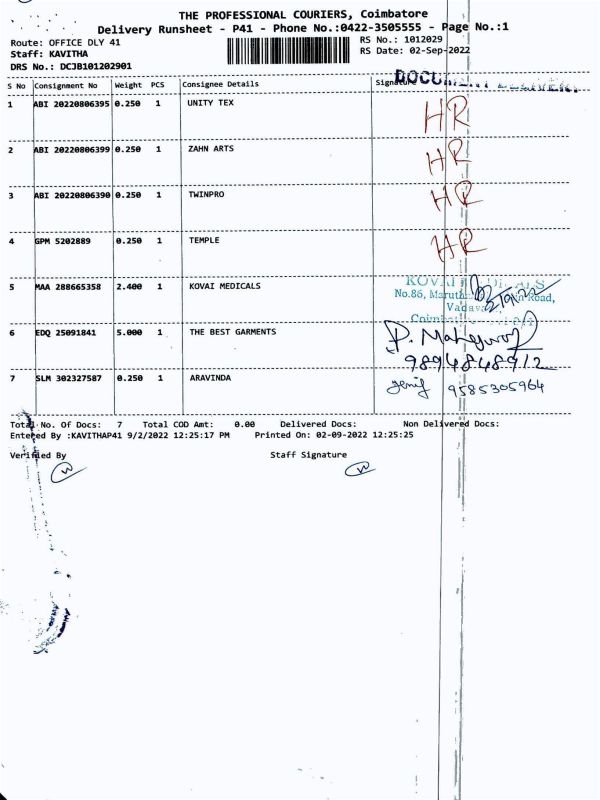 THE PROFESSIONAL COURIERS, Coimbatore
Delivery Runsheet - P41 - Phone No.:0422-3505555 - Page No.:1
Route: OFFICE DLY 41 RS No.: 1012029
Staff: KAVITHA RS Date: 02-Sep-2022
DRS No.: DCJB101202901
S No Consignment No Weight PCS Consignee Details Signature
1 ABI 20220806395 0.250 1 UNITY TEX HR
2 ABI 20220806399 0.250 1 ZAHN ARTS HR
3 ABI 20220806390 0.250 1 TWINPRO HR
4 GPM 5202889 0.250 1 TEMPLE HR
5 MAA 288665358 2.400 1 KOVAI MEDICALS
No.86, Road,
6 EDQ 25091841 5.000 1 THE BEST GARMENTS
9894848912
7 SLM 302327587 0.250 1 ARAVINDA 9585305964
Total No. Of Docs: 7 Total COD Amt: 0.00 Delivered Docs: Non Delivered Docs:
Entered By :KAVITHAP41 9/2/2022 12:25:17 PM Printed On: 02-09-2022 12:25:25
Verified By Staff Signature